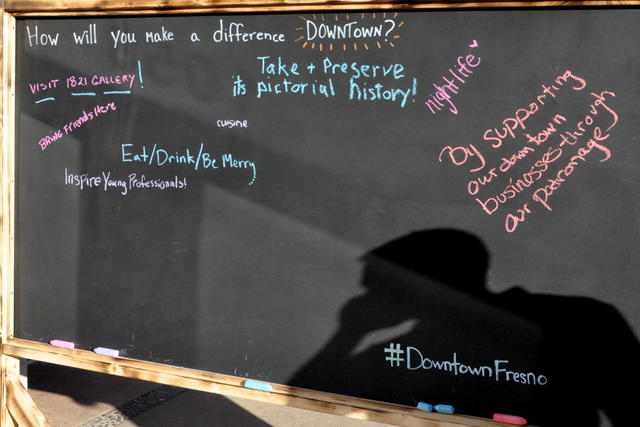 How will you make a difference DOWNTOWN?
VISIT 1821 GALLERY!
Bring Friends Here
Take + Preserve
its pictorial history!
nightlife
By supporting
our downtown
businesses through
our patronage
cuisine
Eat/Drink/Be Merry
Inspire Young Professionals!
#DowntownFresno